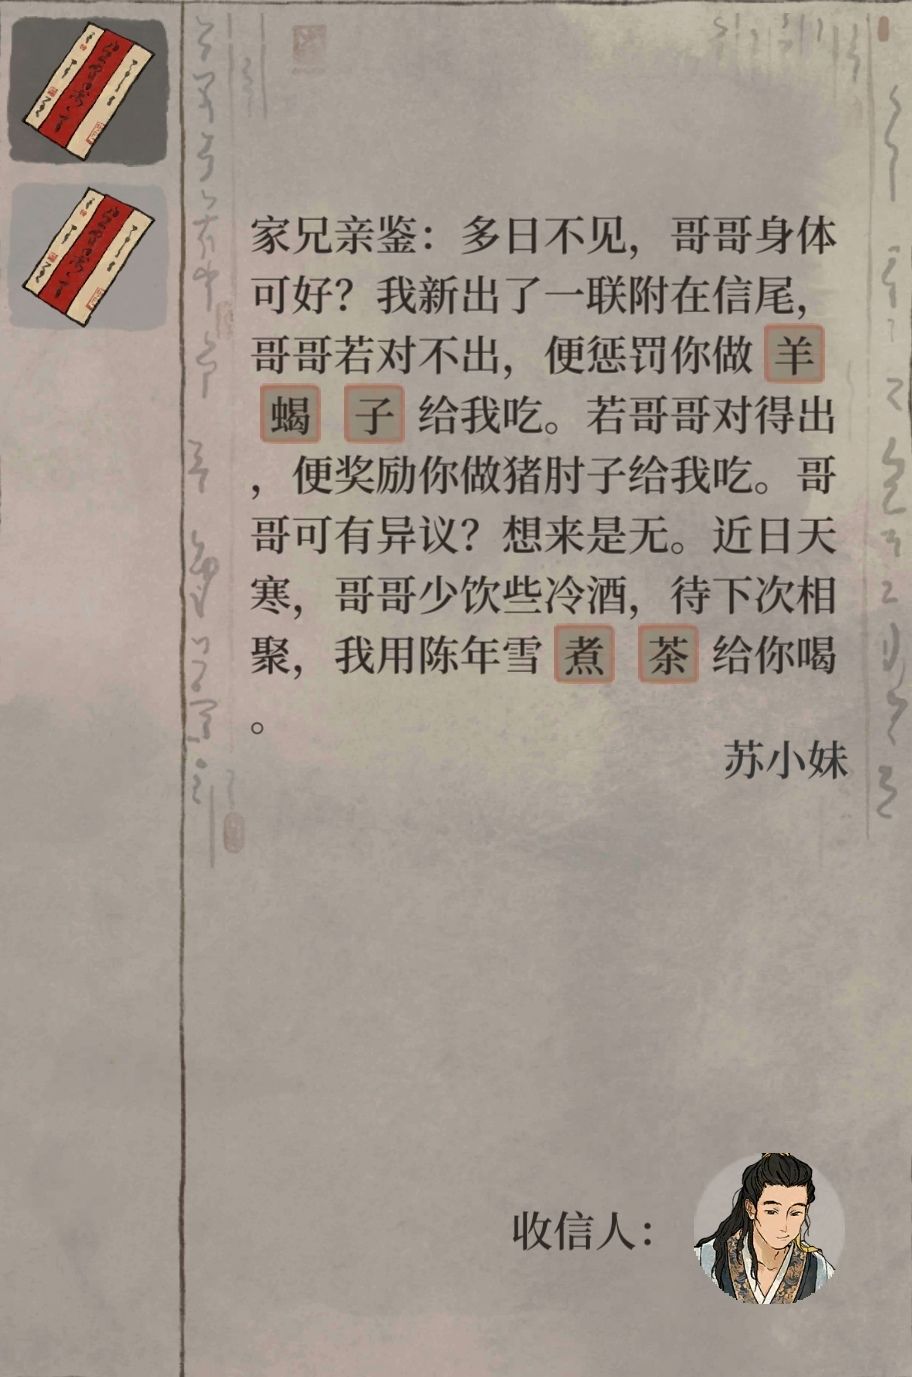 家兄亲鉴：多日不见，哥哥身体
可好？我新出了一联附在信尾，
哥哥若对不出，便惩罚你做羊
蝎子给我吃。若哥哥对得出
，便奖励你做猪肘子给我吃。哥
哥可有异议？想来是无。近日天
寒，哥哥少饮些冷酒，待下次相
聚，我用陈年雪煮茶给你喝
。
苏小妹
收信人：